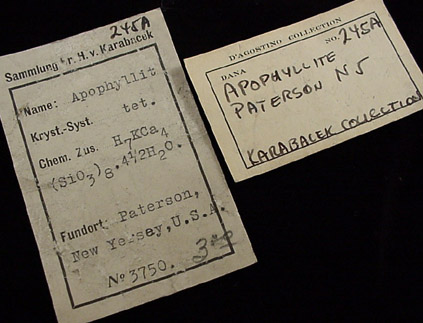 245A
Sammlung Dr. H. v. Karabacek
Name: Apophyllit
Kryst.-Syst. tet.
Chem. Zus. H7KCa4
(SiO3)8.4½H2O.
Fundort: Paterson,
New Yersey, U.S.A.
No 3750.
D'AGOSTINO COLLECTION
DANA NO. 245A
APOPHYLLITE
PATERSON NJ
KARABACEK COLLECTION